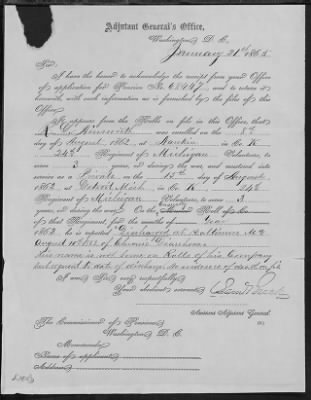 Adjutant General's Office,
Washington D. C.
January 21st 1865
Sir:
I have the honor to acknowledge the receipt from your Office
of application for Pension No. 68447, and to return it
herewith, with such information as is furnished by the files of this
Office.
It appears from the Rolls on file in this Office, that
was enrolled on the 8th
day of August, 1862, at in Co. K
24th Regiment of Michigan Volunteers, to
serve 3 years, or during the war, and mustered into
service as a Private on the 15th day of August,
1862, at Detroit Mich in Co. K, 24th
Regiment of Michigan Volunteers, to serve 3
years, or during the war. On the Roll of Co
of this Regiment, for the months of
1862, he is reported "Discharged at Baltimore Md
August of Chronic Diarrhoea
His name is not borne on Rolls of his Company
subsequent to date of discharge. No evidence of
I am Sir, very respectfully,
Your obedient servant,
Assistant Adjutant General.
The Commissioner of Pensions,
Washington, D. C.
Memoranda:
Name of applicant
Address